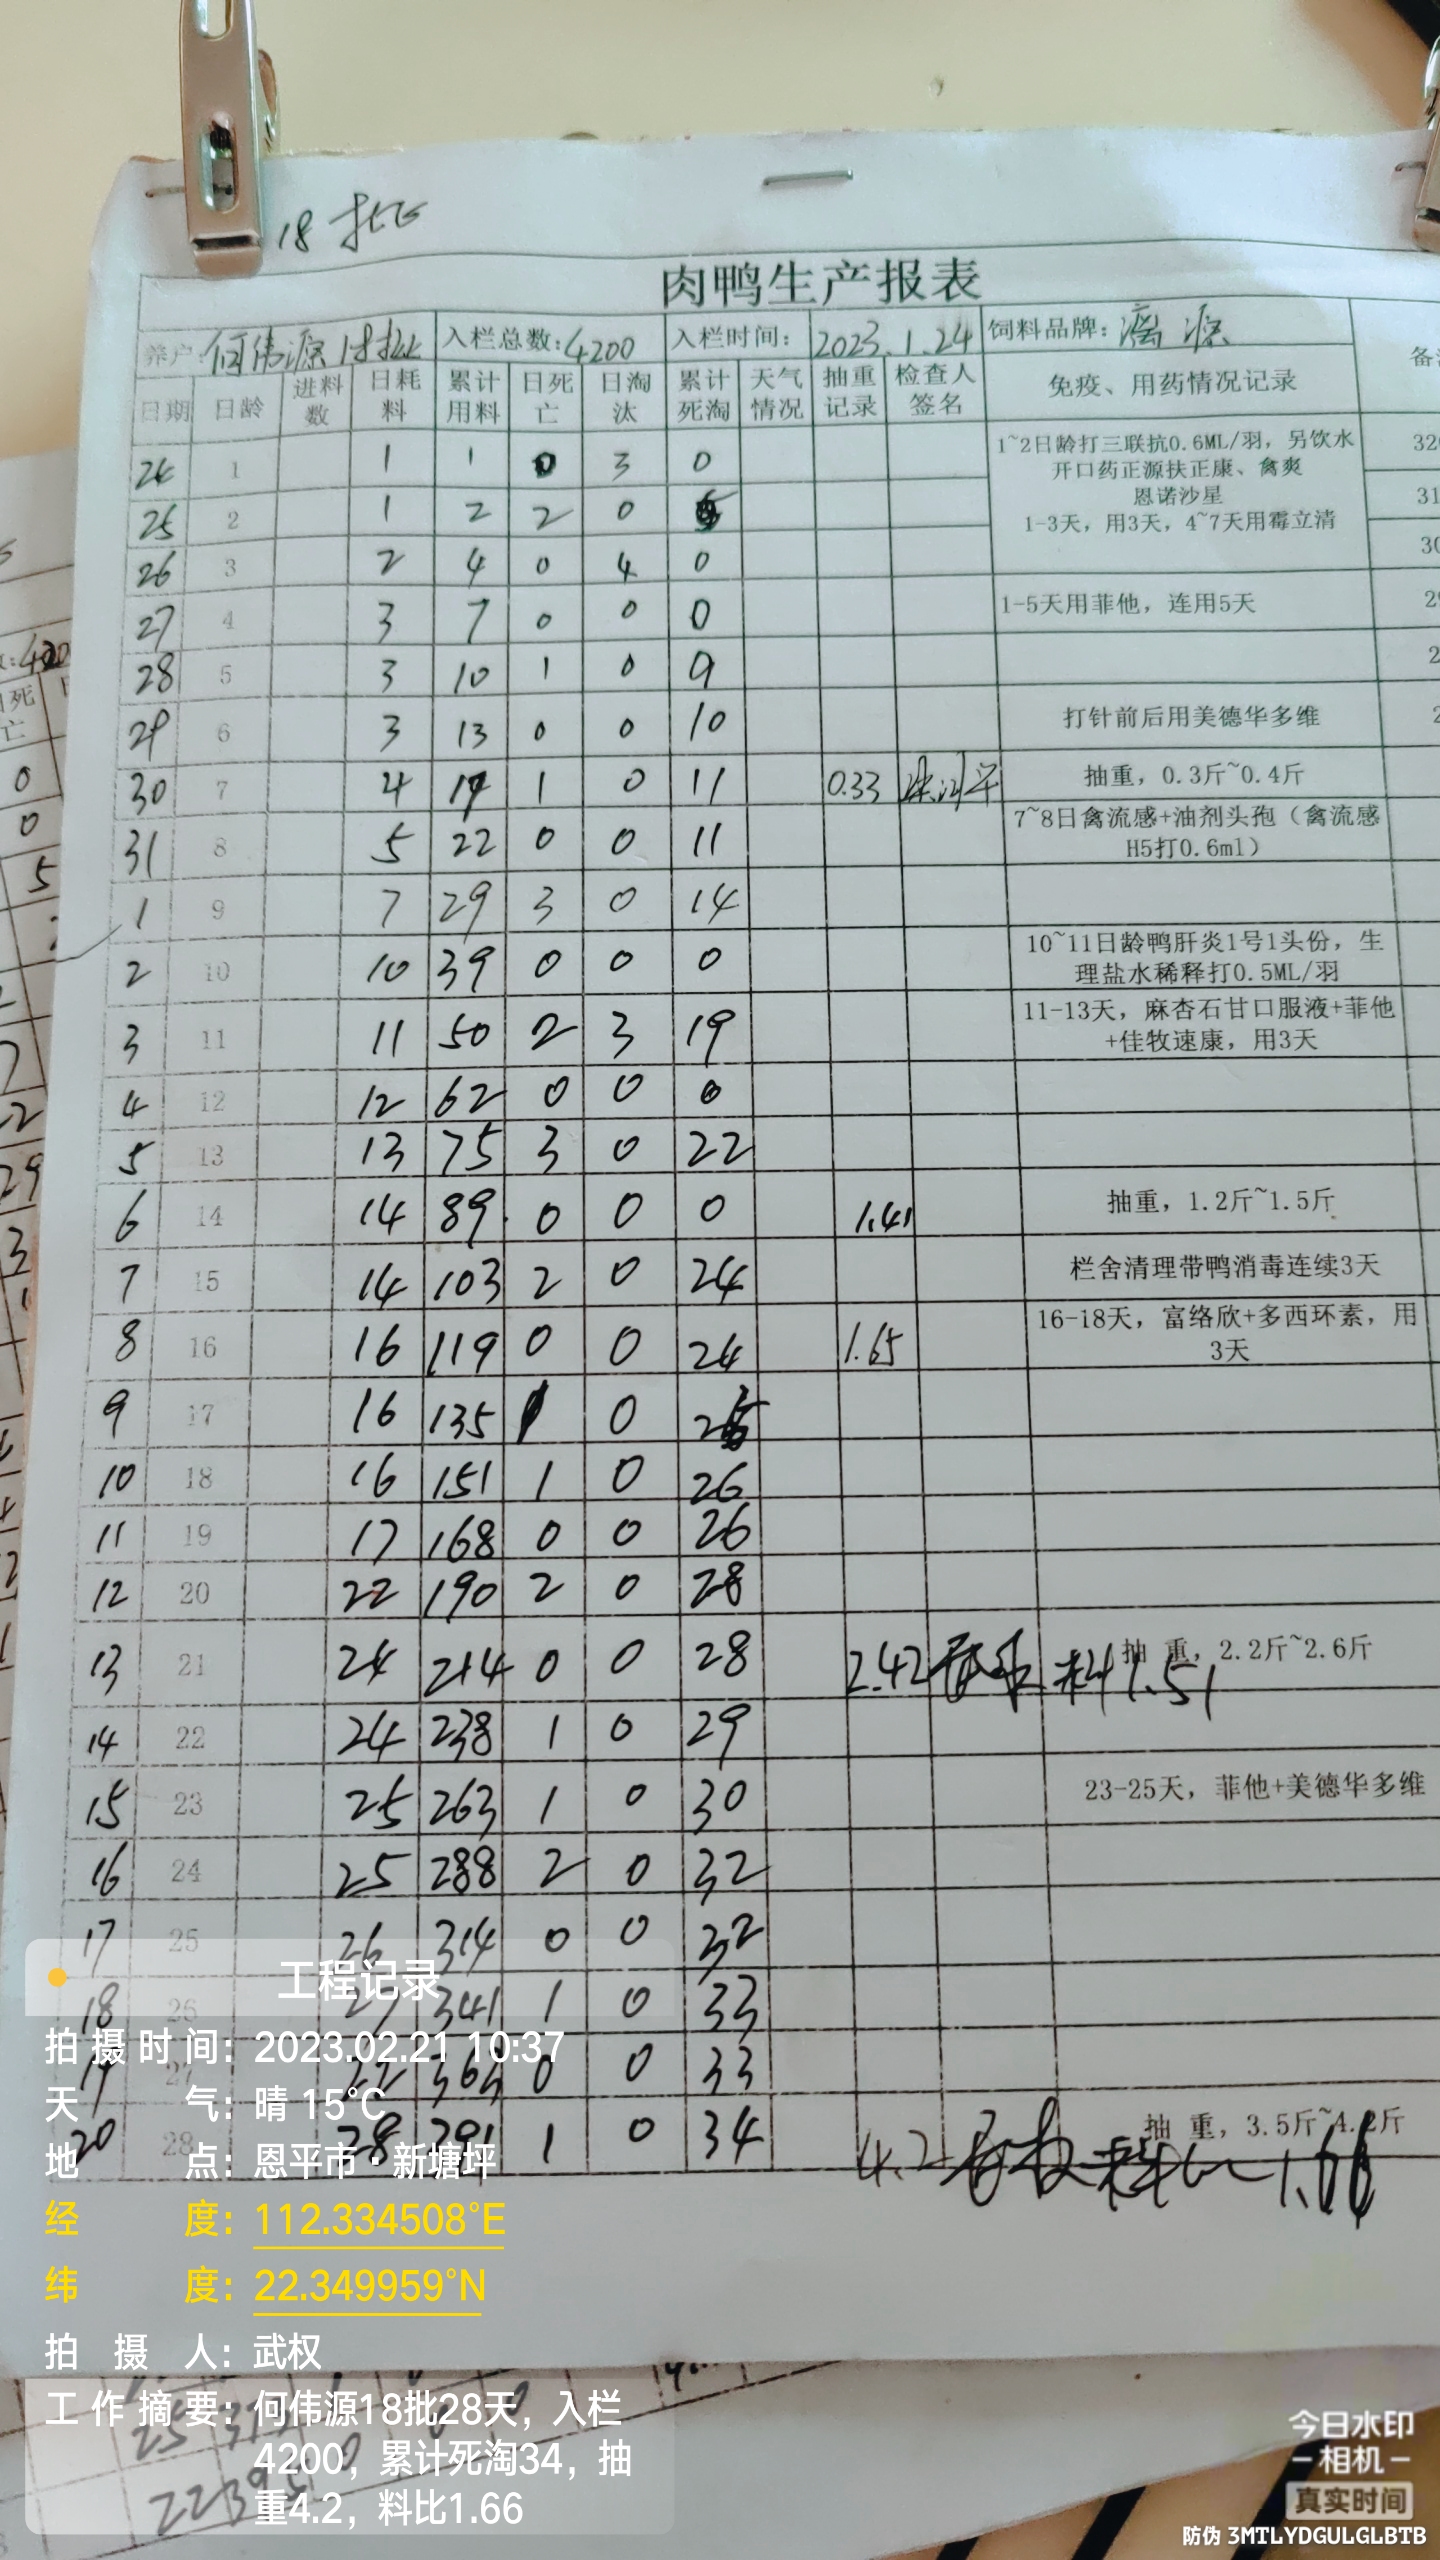 18批
肉鸭生产报表
养户:何伟源18批 入栏总数:4200 入栏时间: 2023.1.24 饲料品牌: 源
日期 日龄 进料数 日耗料 累计用料 日死亡 日淘汰 累计死淘 天气情况 抽重记录 检查人签名 免疫、用药情况记录
24 1 1 1 0 3 0 1~2日龄打三联抗0.6ML/羽，另饮水
开口药正源扶正康、禽爽
恩诺沙星
25 2 1 2 2 0 1-3天，用3天，4~7天用霉立清
26 3 2 4 0 4 0
27 4 3 7 0 0 0 1-5天用菲他，连用5天
28 5 3 10 1 0 9
29 6 3 13 0 0 10 打针前后用美德华多维
30 7 4 17 1 0 11 0.33 抽重，0.3斤~0.4斤
31 8 5 22 0 0 11 7~8日禽流感+油剂头孢（禽流感
H5打0.6ml）
1 9 7 29 3 0 14
2 10 10 39 0 0 0 10~11日龄鸭肝炎1号1头份，生
理盐水稀释打0.5ML/羽
3 11 11 50 2 3 19 11-13天，麻杏石甘口服液+菲他
+佳牧速康，用3天
4 12 12 62 0 0 0
5 13 13 75 3 0 22
6 14 14 89 0 0 0 1.41 抽重，1.2斤~1.5斤
7 15 14 103 2 0 24 栏舍清理带鸭消毒连续3天
8 16 16 119 0 0 24 1.65 16-18天，富络欣+多西环素，用
3天
9 17 16 135 1 0 25
10 18 16 151 1 0 26
11 19 17 168 0 0 26
12 20 22 190 2 0 28
13 21 24 214 0 0 28 2.42 料1.51 抽 重，2.2斤~2.6斤
14 22 24 238 1 0 29
15 23 25 263 1 0 30 23-25天，菲他+美德华多维
16 24 25 288 2 0 32
17 25 26 314 0 0 32
18 26 27 341 1 0 33
19 27 22 363 0 0 33
20 28 28 391 1 0 34 4.2 武权 料比1.66 抽 重，3.5斤~4.2斤
工程记录
拍摄时间：2023.02.21 10:37
天气：晴 15°C
地点：恩平市·新塘坪
经度：112.334508°E
纬度：22.349959°N
拍摄人：武权
工作摘要：何伟源18批28天，入栏
4200，累计死淘34，抽
重4.2，料比1.66
今日水印
相机
真实时间
防伪 3MTLYDGULGLBTB